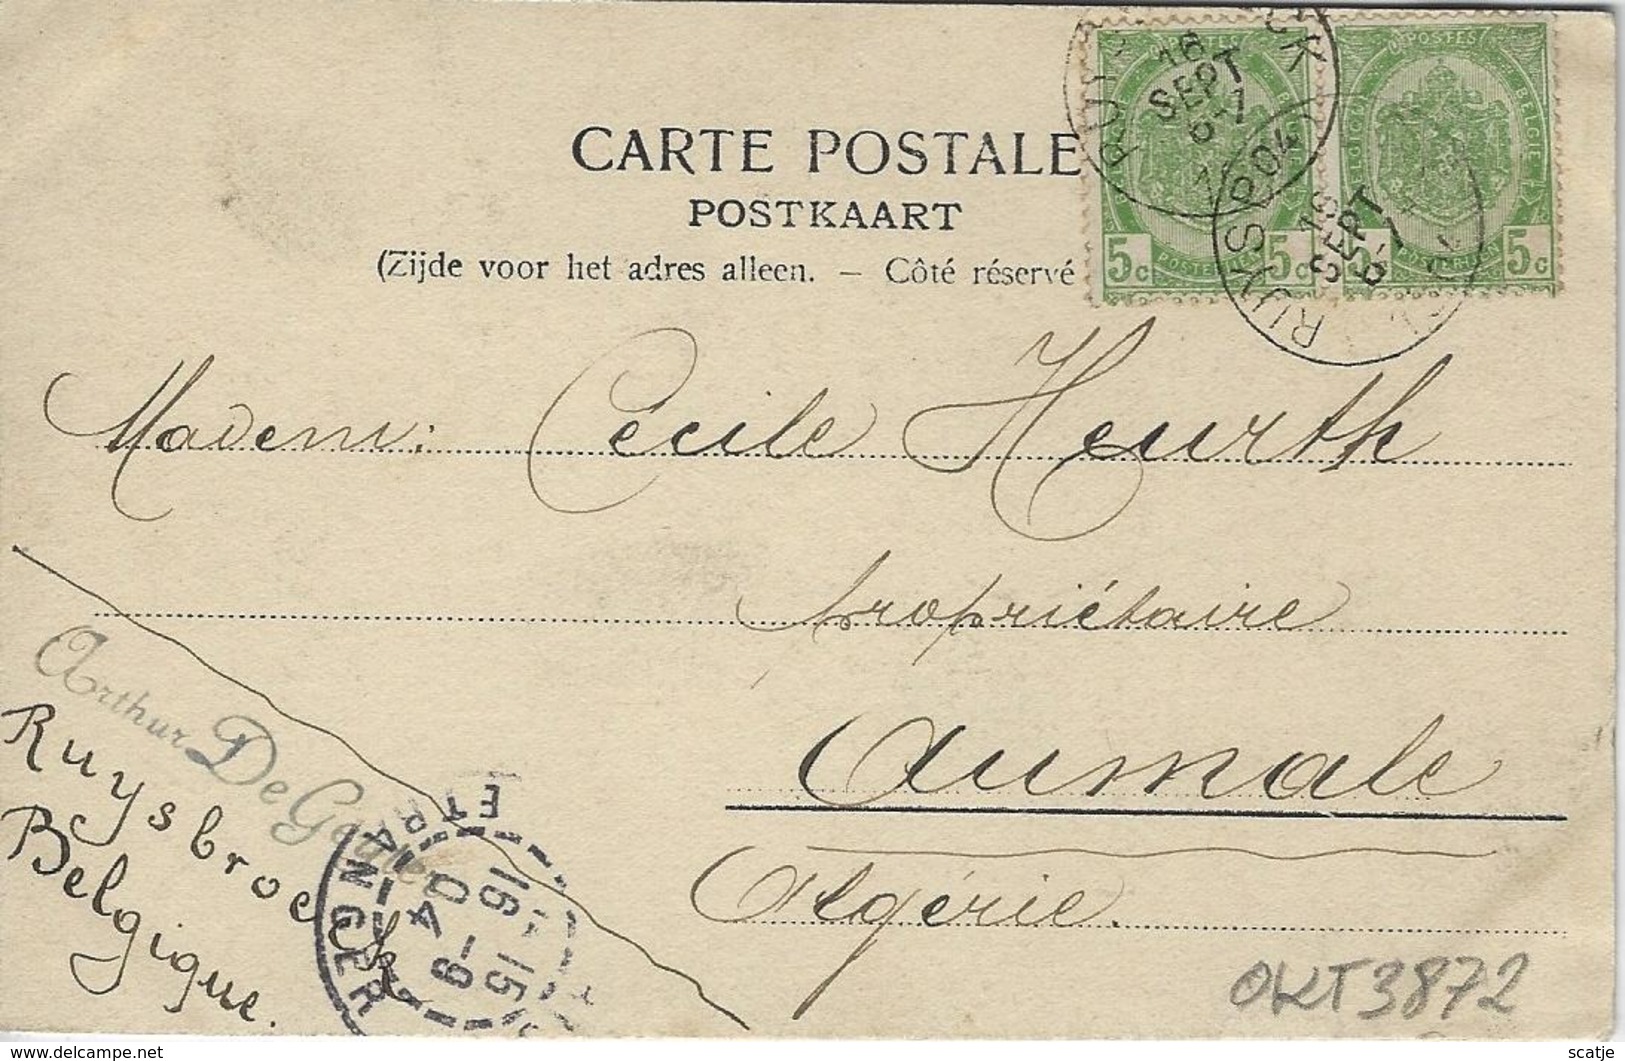 CARTE POSTALE
POSTKAART
(Zijde voor het adres alleen. — Côté réservé
POSTES
BELGIE
5c 5c
POSTERIJEN
POSTES
BELGIQUE BELGIE
5c 5c
16
SEPT
6-7
04
RUYSBR
16
SEPT
6-7
Madem: Cécile Heurth
propriétaire
Aumale
Algérie.
Arthur De
Ruysbroeck
Belgique.
ETRANGER
16 15
9
04
OKT3872
delcampe.net
scatje